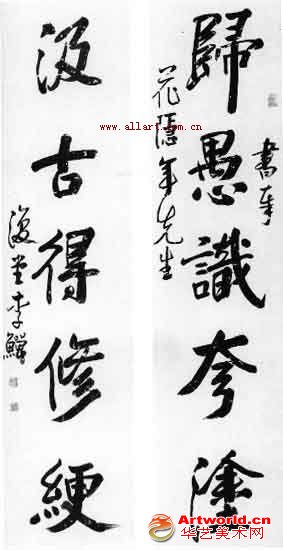 歸愚識夸塗
書奉
花隱年先生
汲古得修綆
復堂李鱓
www.allart.com.cn
Artworld.cn
华艺美术网